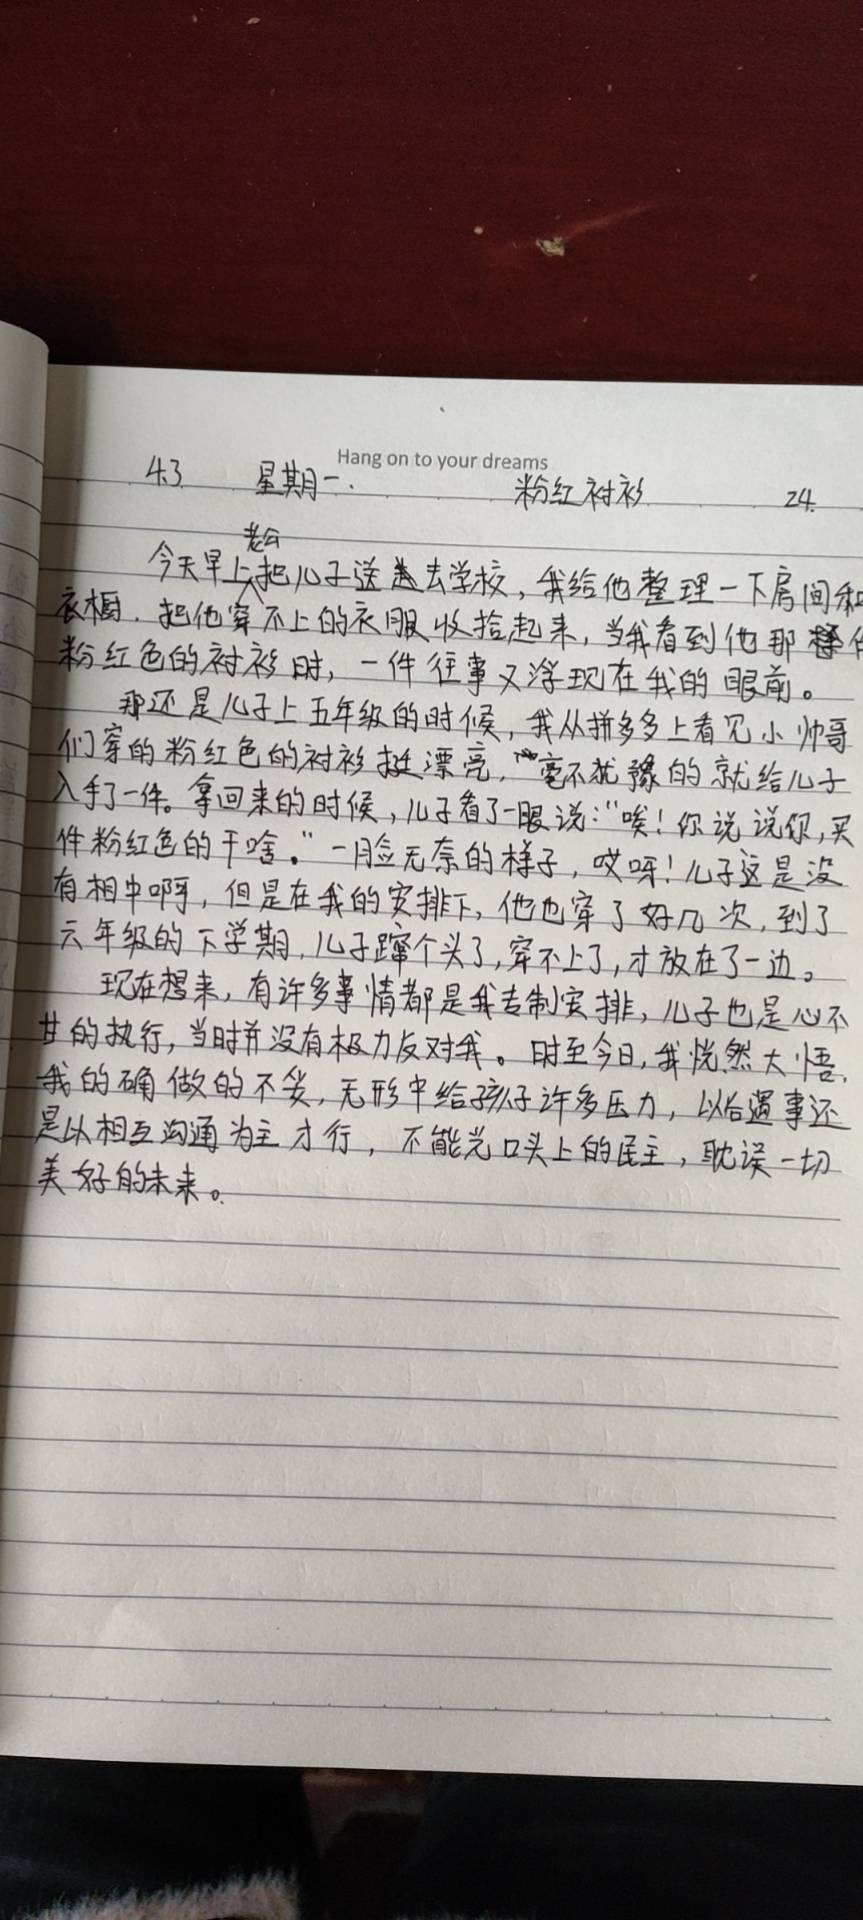 Hang on to your dreams
4.3 星期一. 粉红衬衫 24.
老公
今天早上把儿子送去学校，我给他整理一下房间和
衣橱．把他穿不上的衣服收拾起来，当我看到他那件
粉红色的衬衫时，一件往事又浮现在我的眼前。
那还是儿子上五年级的时候，我从拼多多上看见小帅哥
们穿的粉红色的衬衫挺漂亮，毫不犹豫的就给儿子
入手了一件。拿回来的时候，儿子看了一眼说："唉！你说说你，买
件粉红色的干啥。"一脸无奈的样子，哎呀！儿子这是没
有相中啊，但是在我的安排下，他也穿了好几次，到了
六年级的下学期，儿子蹿个头了，穿不上了，才放在了一边。
现在想来，有许多事情都是我专制安排，儿子也是心不
甘的执行，当时并没有极力反对我。时至今日，我恍然大悟，
我的确做的不妥，无形中给孩子许多压力，以后遇事还
是以相互沟通为主才行，不能光口头上的民主，耽误一切
美好的未来。